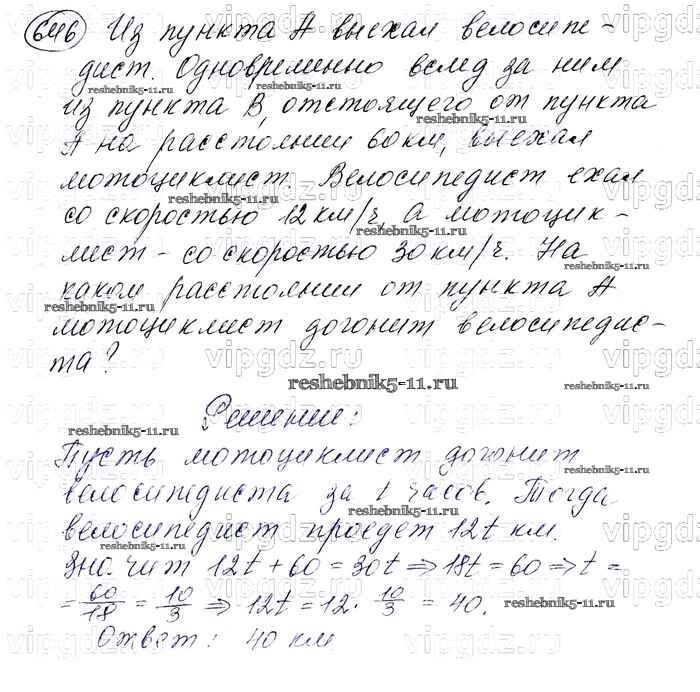 646 Из пункта А выехал велосипе-
дист. Одновременно вслед за ним
из пункта В, отстоящего от пункта
А на расстоянии 60 км, выехал
мотоциклист. Велосипедист ехал
со скоростью 12 км/ч, а мотоцик-
лист - со скоростью 30 км/ч. На
каком расстоянии от пункта А
мотоциклист догонит велосипедис-
та?
Решение:
Пусть мотоциклист догонит
велосипедиста за t часов. Тогда
велосипедист проедет 12t км.
Значит 12t + 60 = 30t ⇒ 18t = 60 ⇒ t =
= 60/18 = 10/3 ⇒ 12t = 12 · 10/3 = 40.
Ответ: 40 км
reshebnik5-11.ru
vipgdz.ru